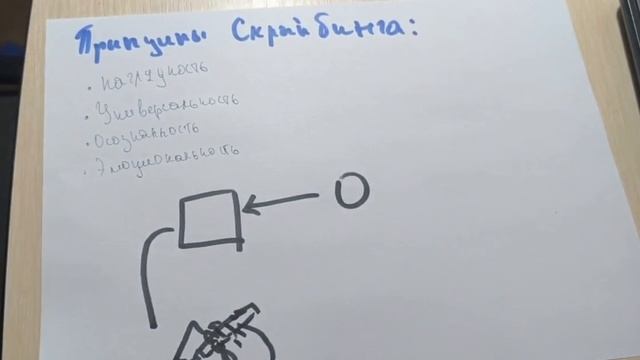 Принципы Скрайбинга:
· наглядность
· Универсальность
· Осознанность
· Эмоциональность